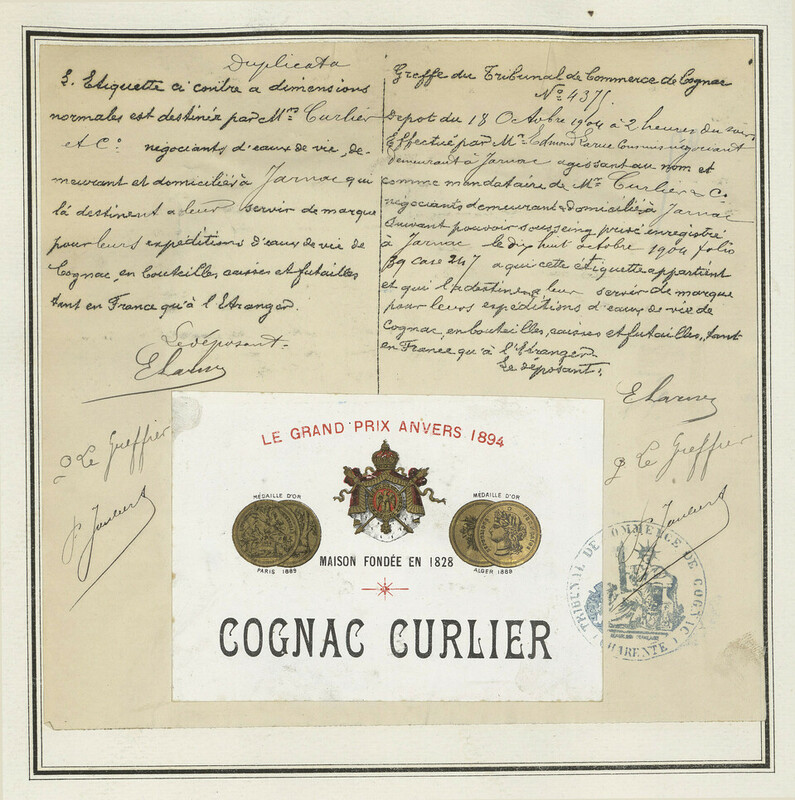 Duplicata
L'Etiquette ci contre a dimensions
normales est destinée par Mrs Curlier
et Co négociants d'eaux de vie, de-
meurant et domiciliés à Jarnac qui
la destinent a leur servir de marque
pour leurs expéditions d'eaux de vie de
Cognac, en bouteilles, caisses et futailles
tant en France qu'à l'Etranger.
Le déposant.
Le Greffier
Greffe du Tribunal de Commerce de Cognac
No 4371.
Depot du 18 Octobre 1904 à 2 heures du soir
Effectué par Mr Edmond négociant
demeurant à Jarnac agissant au nom et
comme mandataire de Mrs Curlier & Co
négociants demeurant & domiciliés à Jarnac
suivant pouvoir sousseing privé enregistré
à Jarnac le dix huit octobre 1904 folio
89 case 247 a qui cette étiquette appartient
et qui la destine a leur servir de marque
pour leurs expéditions d'eaux de vie de
Cognac, en bouteilles, caisses et futailles, tant
en France qu'à l'Etranger.
Le déposant.
Le Greffier
LE GRAND PRIX ANVERS 1894
MÉDAILLE D'OR
PARIS 1889
MÉDAILLE D'OR
ALGER 1889
MAISON FONDÉE EN 1828
COGNAC CURLIER
TRIBUNAL DE COMMERCE DE COGNAC
RÉPUBLIQUE FRANÇAISE
(CHARENTE)